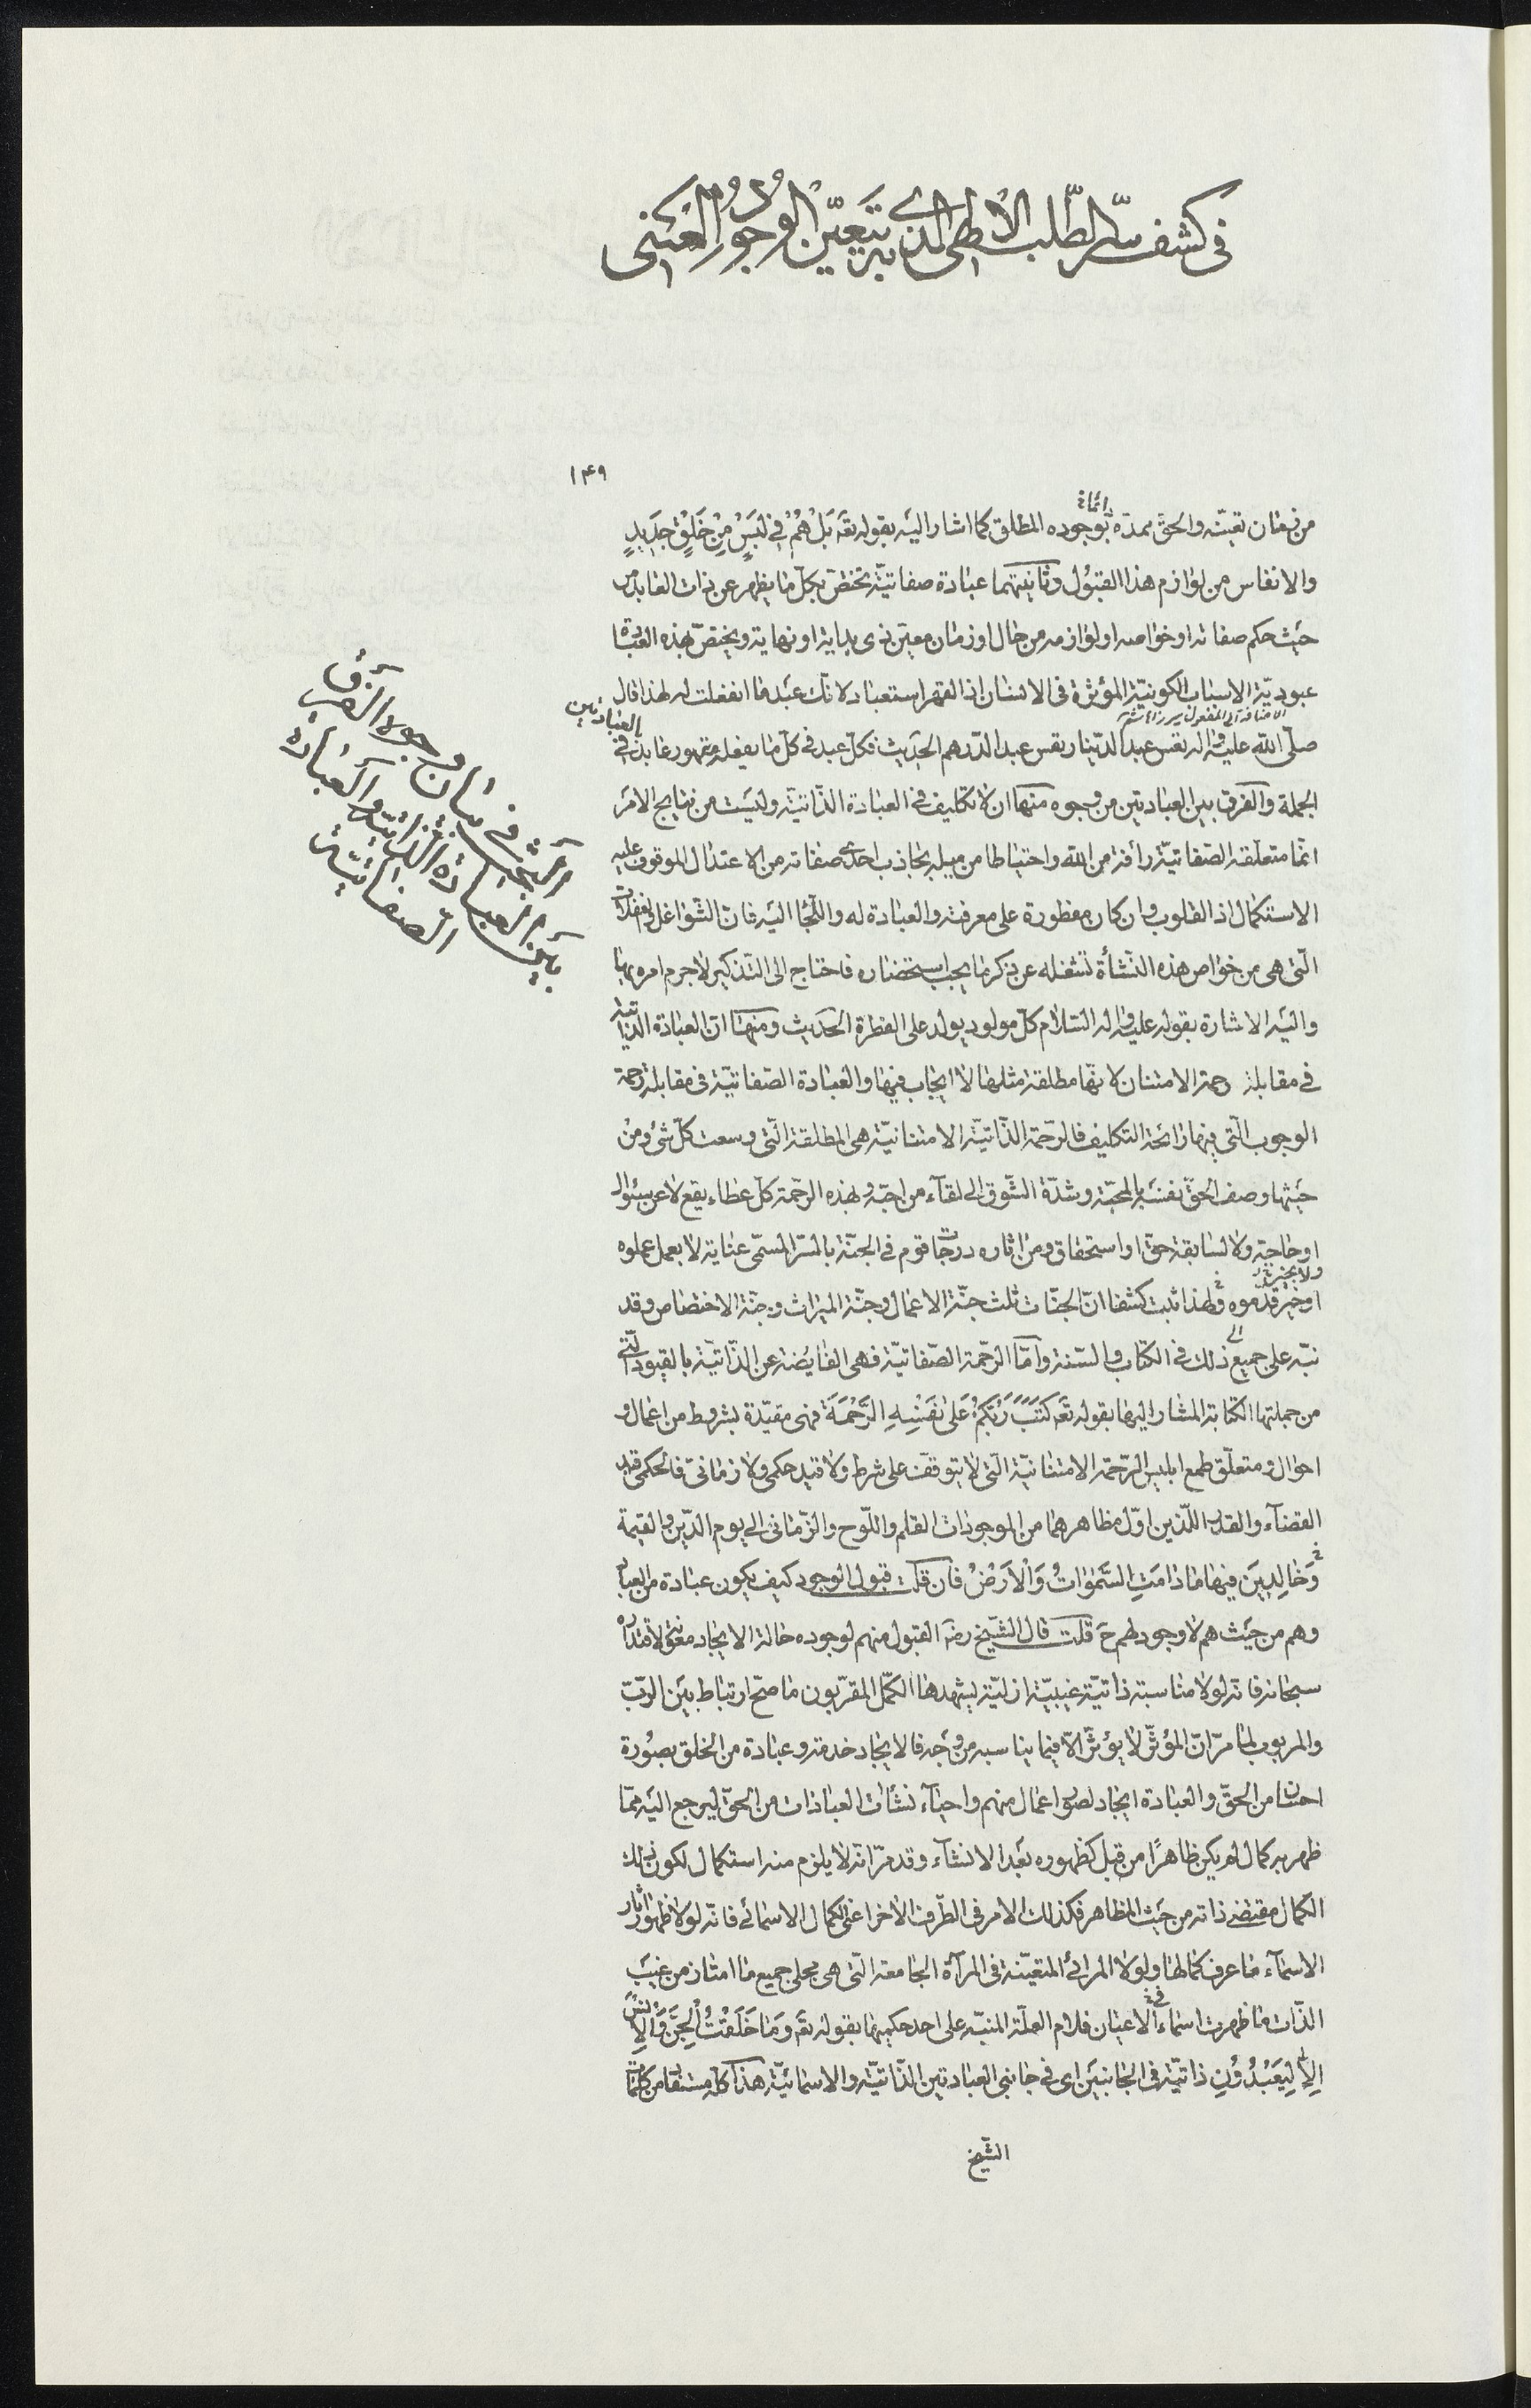 فى كشف سرّ الطّلب الالهى الذى به يتعيّن الوجود العينى
١۴٩
من زمان تعيّنه والحقّ ممدّه بوجوده المطلق كما اشار اليه بقوله تعَ بَلْ هُمْ فِى لَبْسٍ مِنْ خَلْقٍ جَدِيدٍ
دائما خ
والانفاس من لوازم هذا القبول وثانيتهما عبادة صفاتيّة تختصّ بكلّ ما يظهر عن ذات العابد من
حيث حكم صفاته او خواصه او لوازمه من حال او زمان معيّن ذى بداية او نهاية ويختصّ بهذه العبادة
عبوديّة الاسباب الكونيّة المؤثرة فى الانسان اذ القهر استعباد لانّك عبد ما انفعلت له لهذا قال
الاضافة الى المفعول
صلّى الله عليه وآله تعس عبد الدّينار تعس عبد الدّرهم الحديث فكلّ عبد فى كلّ ما يفعله مقهور عابد فى
بالعبادتين
الجملة والفرق بين العبادتين من وجوه منها ان لا تكليف فى العبادة الذّاتيّة وليست من نتايج الامر
انّما متعلّقه الصّفاتيّة رأفة من الله واحتياطا من ميله بجاذب احدى صفاته من الاعتدال الموقوف عليه
الاستكمال اذ القلوب وان كان مفطورة على معرفته والعبادة له واللّجأ اليه فان الشّواغل والغفلات
الّتى هى من خواص هذه النّشأة تشغله عن ذكر ما يجب استحضاره فاحتاج الى التّذكير لاجرم امره بها
واليه الاشارة بقوله عليه وآله السّلام كلّ مولود يولد على الفطرة الحديث ومنها انّ العبادة الذّاتية
فى مقابلة رحمة الامتنان لانّها مطلقة مثلها لا ايجاب فيها والعبادة الصّفاتيّة فى مقابلة رحمة
الوجوب الّتى فيها رائحة التكليف فالرّحمة الذّاتيّة الامتنانيّة هى المطلقة الّتى وسعت كلّ شئ ومن
حيثها وصف الحقّ نفسه بالمحبّة وشدّة الشّوق الى لقاء من احبّه وبهذه الرّحمة كلّ عطاء يقع لا عن سئوال
او حاجة ولا لسابقة حقّ او استحقاق ومن اثاره درجات قوم فى الجنّة بالسّر المسمّى عناية لا بعمل عملوه
او خير قدّموه ولهذا ثبت كشفا انّ الجنّات ثلث جنّة الاعمال وجنّة الميراث وجنّة الاختصاص وقد
ولا بخير خ
نبّه على جميع ذلك فى الكتاب والسّنة وامّا الرّحمة الصّفاتيّة فهى الفايضة عن الذّاتيّة بالقيود الّتى
من جملتها الكتابة المشار اليها بقوله تعَ كَتَبَ رَبُّكُمْ عَلى نَفْسِهِ الرَّحْمَةَ فهى مقيّدة بشروط من اعمال و
احوال ومتعلّق طمع ابليس الرّحمة الامتنانيّة الّتى لا يتوقّف على شرط ولا قيد حكمى ولا زمانىّ فالحكمى قيد
القضاء والقدر اللّذين اوّل مظاهرهما من الموجودات القلم واللّوح والزّمانى الى يوم الدّين والقيمة
وَخالِدِينَ فيها ما دامَتِ السَّمواتُ وَالْاَرْضُ فان قلت قبول الوجود كيف يكون عبادة من العباد
وهم من حيث هم لا وجود لهم حَ قلت قال الشّيخ رضه القبول منهم لوجوده حالة الايجاد معونة لاقتداره
سبحانه فانّه لولا مناسبة ذاتيّة غيبيّة ازليّة يشهدها الكمّل المقرّبون ما صحّ ارتباط بين الربّ
والمربوب لما مرّ انّ المؤثّر لا يؤثّر الّا فيما يناسبه من وجه فالايجاد خدمة وعبادة من الخلق بصورة
احسان من الحقّ والعبادة ايجاد لصور اعمال منهم واحياء نشأت العبادات من الحقّ ليرجع اليه ممّا
ظهر به كمال لم يكن ظاهرًا من قبل كظهوره بعد الانشاء وقد مرّ انّه لا يلزم منه استكمال لكون ذلك
الكمال مقتضى ذاته من حيث المظاهر فكذلك الامر فى الطّرف الاخر اعنى الكمال الاسمائى فانّه لولا ظهور اثار
الاسماء ما عرف كمالها ولولا المرائى المتعيّنة فى المرآة الجامعة الّتى هى مجلى جميع ما امتاز من غيب
الذّات ما ظهرت اسماء الاعيان فلام العلّة المنبّه على احد حكميها بقوله تعَ وَما خَلَقْتُ الْجِنَّ وَالْاِنْسَ
فى خ
اِلّا لِيَعْبُدُونِ ذاتيّة فى الجانبين اى فى جانبى العبادتين الذّاتيّة والاسمائيّة هذا كلّه مستفاد من كلمات
الشّيخ
البحث فى بيان وجوه الفرق
بين العبادة الذّاتيّة والعبادة
الصفاتيّة